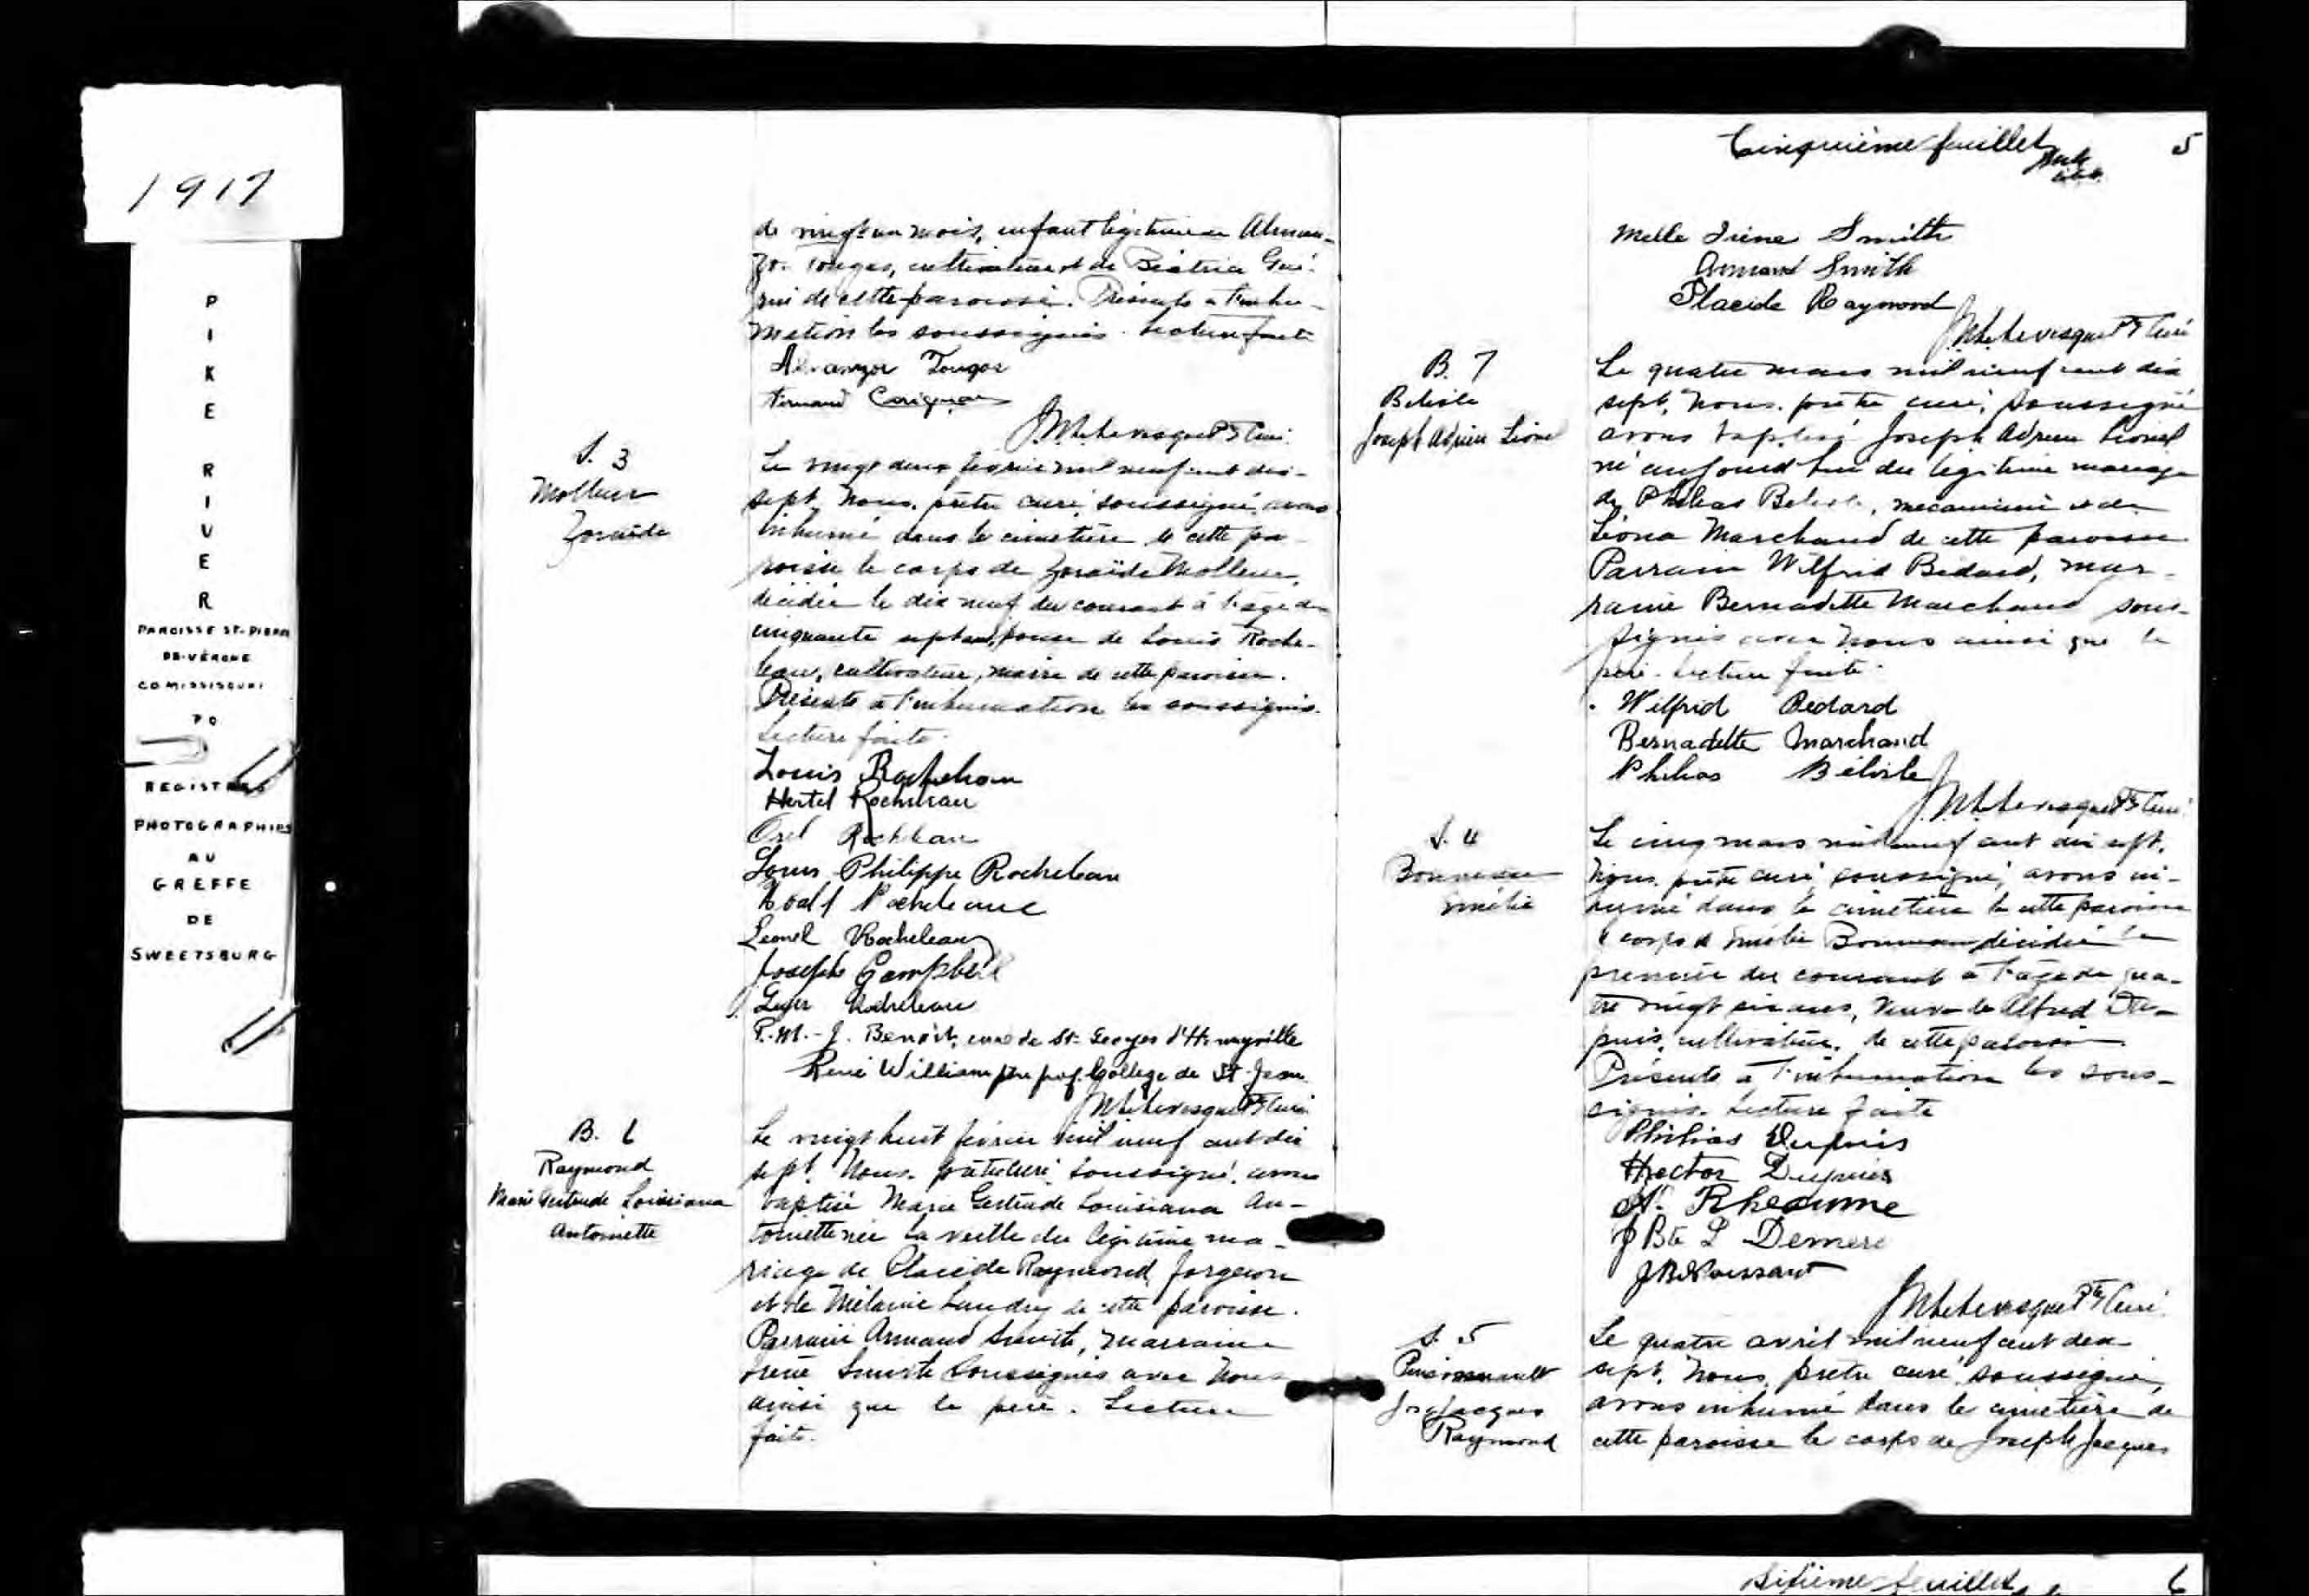 1917
PIKE RIVER
PAROISSE ST-PIERRE
DE-VÉRONE
CO MISSISQUOI
PQ
REGISTRES
PHOTOGRAPHIÉS
AU
GREFFE
DE
SWEETSBURG
de vingt un mois, enfant légitime de Alman-
zor Tougas, cultivateur et de Béatrice Gué-
rin de cette paroisse. Présents à l'inhu-
mation les soussignés. Lecture faite
Almanzor Tougas
Armand Carignan
Ptre Curé
S. 3
Molleur
Zoraïde
Le vingt deux février mil neuf cent dix-
sept, Nous, prêtre curé, soussigné, avons
inhumé dans le cimetière de cette pa-
roisse le corps de Zoraïde Molleur,
décédée le dix neuf du courant à l'âge de
cinquante sept ans, épouse de Louis Roche-
leau, cultivateur, maire de cette paroisse.
Présents à l'inhumation les soussignés.
Lecture faite.
Louis Rocheleau
Hertel Rocheleau
Rocheleau
Louis Philippe Rocheleau
Rocheleau
Leonel Rocheleau
Joseph Campbell
Léger Rocheleau
P.-M.-J. Benoit, curé de St-Georges d'Henryville
René William ptre prof. Collège de St Jean
Ptre Curé
B. 6
Raymond
Marie Gertrude Louisiana
Antoinette
Le vingt huit février mil neuf cent dix
sept, Nous, prêtre curé, soussigné, avons
baptisé Marie Gertrude Louisiana An-
toinette née la veille du légitime ma-
riage de Placide Raymond, forgeron
et de Mélanie Landry de cette paroisse.
Parrain Armand Smith, marraine
Irène Smith soussignés avec Nous
ainsi que le père. Lecture
faite.
Cinquième feuillet
5
Melle Irène Smith
Armand Smith
Placide Raymond
Ptre Curé
B. 7
Belisle
Joseph Adrien Lionel
Le quatre mars mil neuf cent dix
sept, Nous, prêtre curé, soussigné
avons baptisé Joseph Adrien Lionel
né aujourd'hui du légitime mariage
de Philias Belisle, mécanicien et de
Léona Marchand de cette paroisse
Parrain Wilfrid Bédard, mar-
raine Bernadette Marchand sous-
signés avec Nous ainsi que le
père. Lecture faite.
Wilfrid Bédard
Bernadette Marchand
Philias Bélisle
Ptre Curé
S. 4
Bonneau
Émélie
Le cinq mars mil neuf cent dix sept,
Nous, prêtre curé, soussigné, avons in-
humé dans le cimetière de cette paroisse
le corps de Émélie Bonneau décédée le
premier du courant à l'âge de qua-
tre vingt six ans, veuve de Alfred Du-
puis, cultivateur, de cette paroisse.
Présents à l'inhumation les sous-
signés. Lecture faite
Philias Dupuis
Hector Dupuis
N. Rheaume
J Bte L Demers
Ptre Curé
S. 5
Jos Jacques
Raymond
Le quatre avril mil neuf cent dix
sept, Nous, prêtre curé, soussigné,
avons inhumé dans le cimetière de
cette paroisse le corps de Joseph Jacques
Sixième feuillet
6